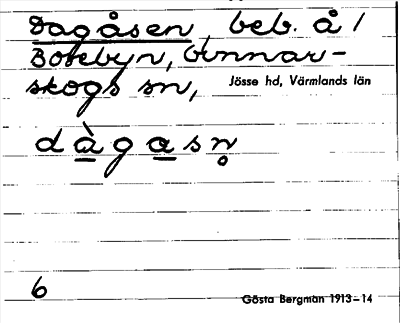 Dagåsen, beb. å /
Botebyn, Gunnar-
skogs sn,
Jösse hd, Värmlands län
dàgasn̥
6
Gösta Bergman 1913–14